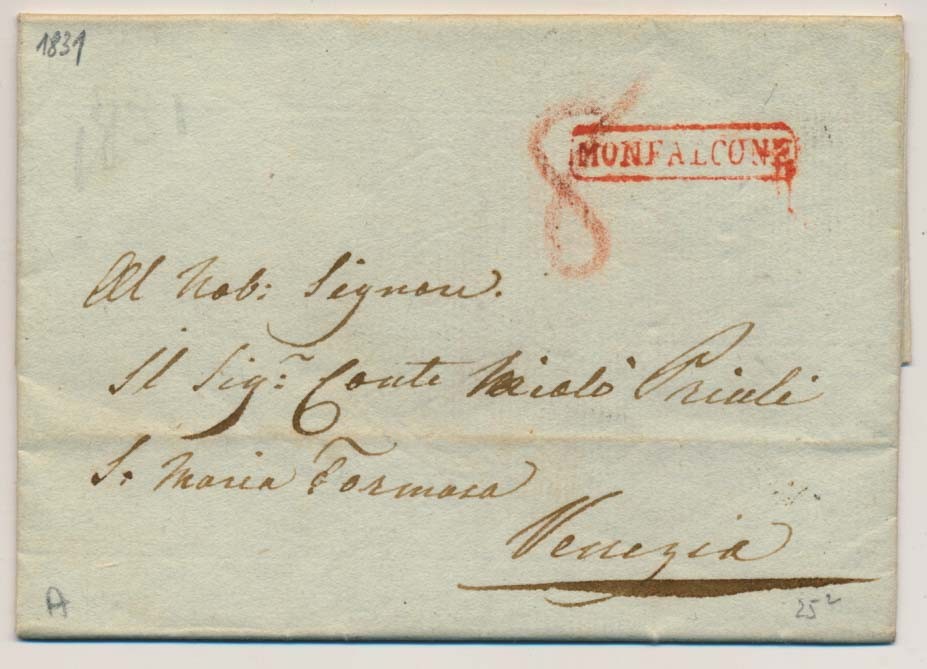 1831
8
MONFALCONE
Al Nob: Signore.
Il Sig:r Conte Nicolò Priuli
S. Maria Formosa
Venezia
A
25²